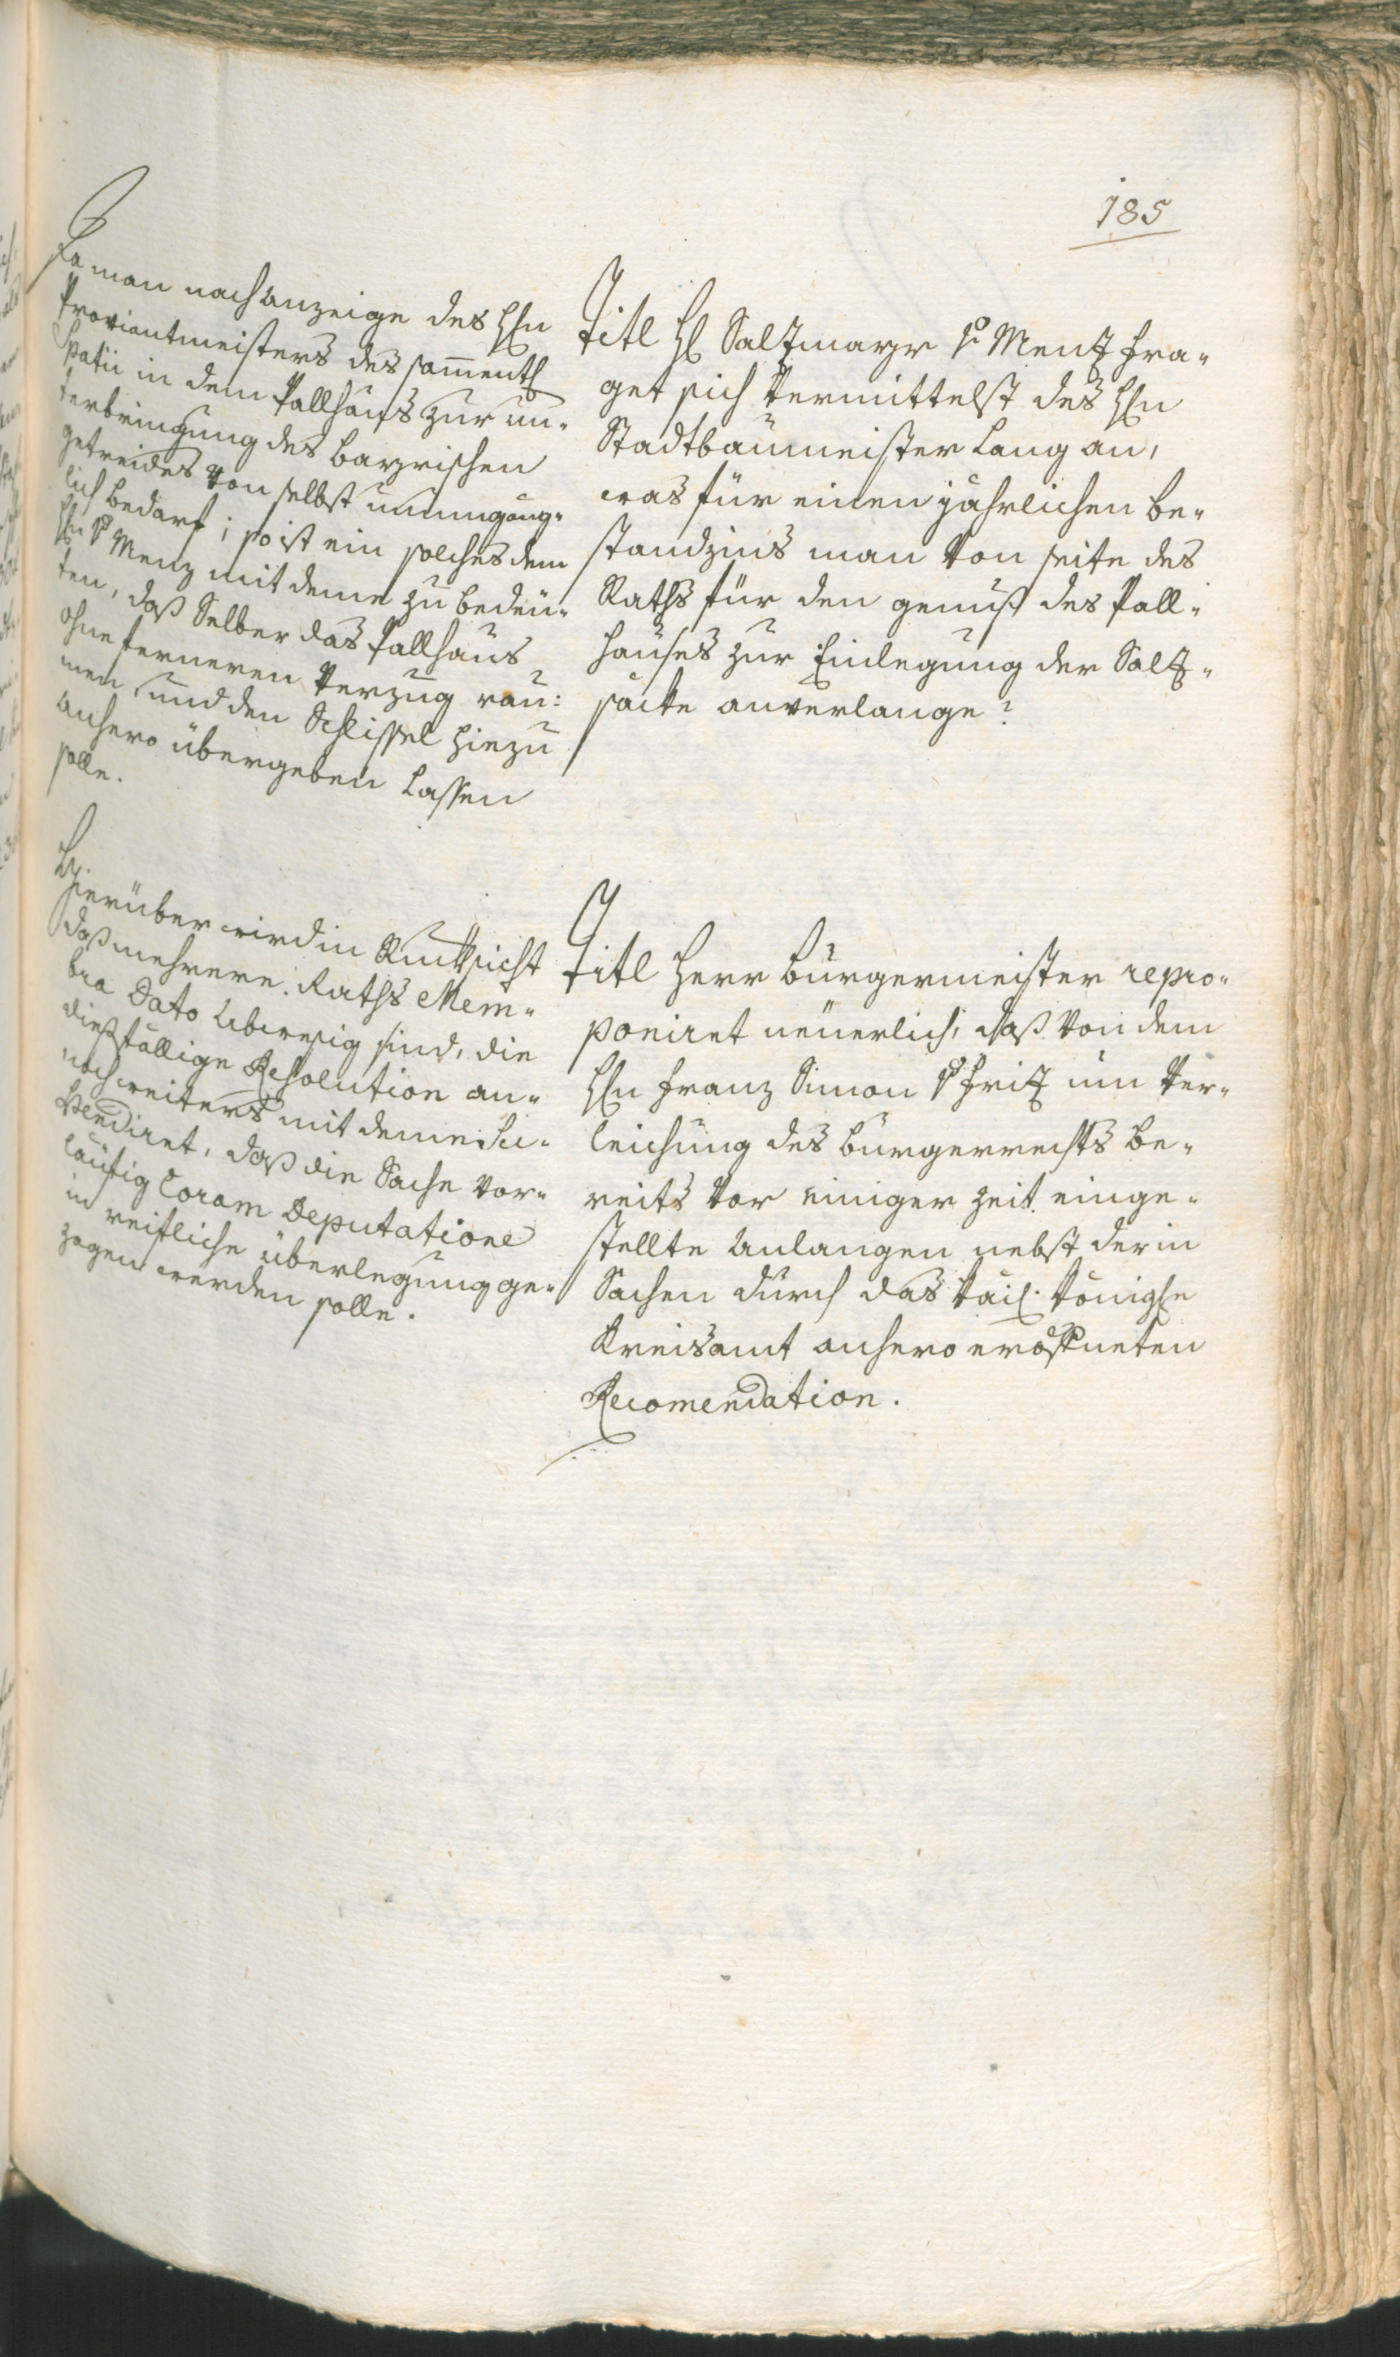 185
Da man nach Anzeige des Hn
Proviantmeisters des samentl
Spatii in dem Pallhaus zur un-
terbringung des bayrischen
getreides von selbst unumgäng-
lich bedarf; so ist ein solches dem
Hn v Menz mit deme zu bedeu-
ten, daß Selber das Pallhaus
ohne ferneren Verzug rau:
men und den Schlissel hiezu
anhero übergeben lassen
solle.
Titl H Saltzmayr v Mentz fra-
get sich vermittelst des Hn
Stadtbaumeister Lang an,
was für einen jährlichen be-
standzins man von seite des
Raths für den genuß des Pall-
hauses zur Einlegung der Saltz-
säcke anverlange?
Hierüber wird in Rucksicht
daß mehrere Raths Mem-
bra Dato abwesig sind, die
dießfällige Resolution an-
noch weiters mit deme su-
spendiret, daß die Sache vor-
läufig Coram Deputatione
in reifliche überlegung ge-
zogen werden solle.
Titl Herr burgermeister repro-
poniret neuerlich, daß von dem
Hn Franz Simon v Fritz um Ver-
leichung des burgerrechts be-
reits vor einiger Zeit einge-
stellte Anlangen nebst der in
Sachen durch das kaiß. königle
Kreisamt anhero eröffneten
Recomendation.